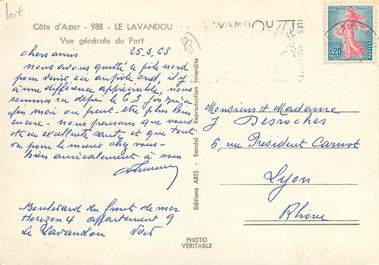 lot
Côte d'Azur - 988 - LE LAVANDOU
Vue générale du Port
25.3.63
chers amis
nous avons quitté le pôle nord
pour venir ici au pôle sud, il y
a une différence appréciable, nous
sommes ici depuis le 6.3 jusqu'à
fin mai ou peut être plus loin
encore - nous pensons que vous
êtes en excellente santé et que tout
va pour le mieux chez vous -
bien amicalement à vous
Boulevard du front de mer
Horizon 4 appartement 9
Le Lavandou Var
Editions ARIS - Bandol Reproduction interdite
PHOTO
VERITABLE
REPUBLIQUE FRANÇAISE
0,20
Monsieur & Madame
J Desroches
6, rue Président Carnot
Lyon
Rhône